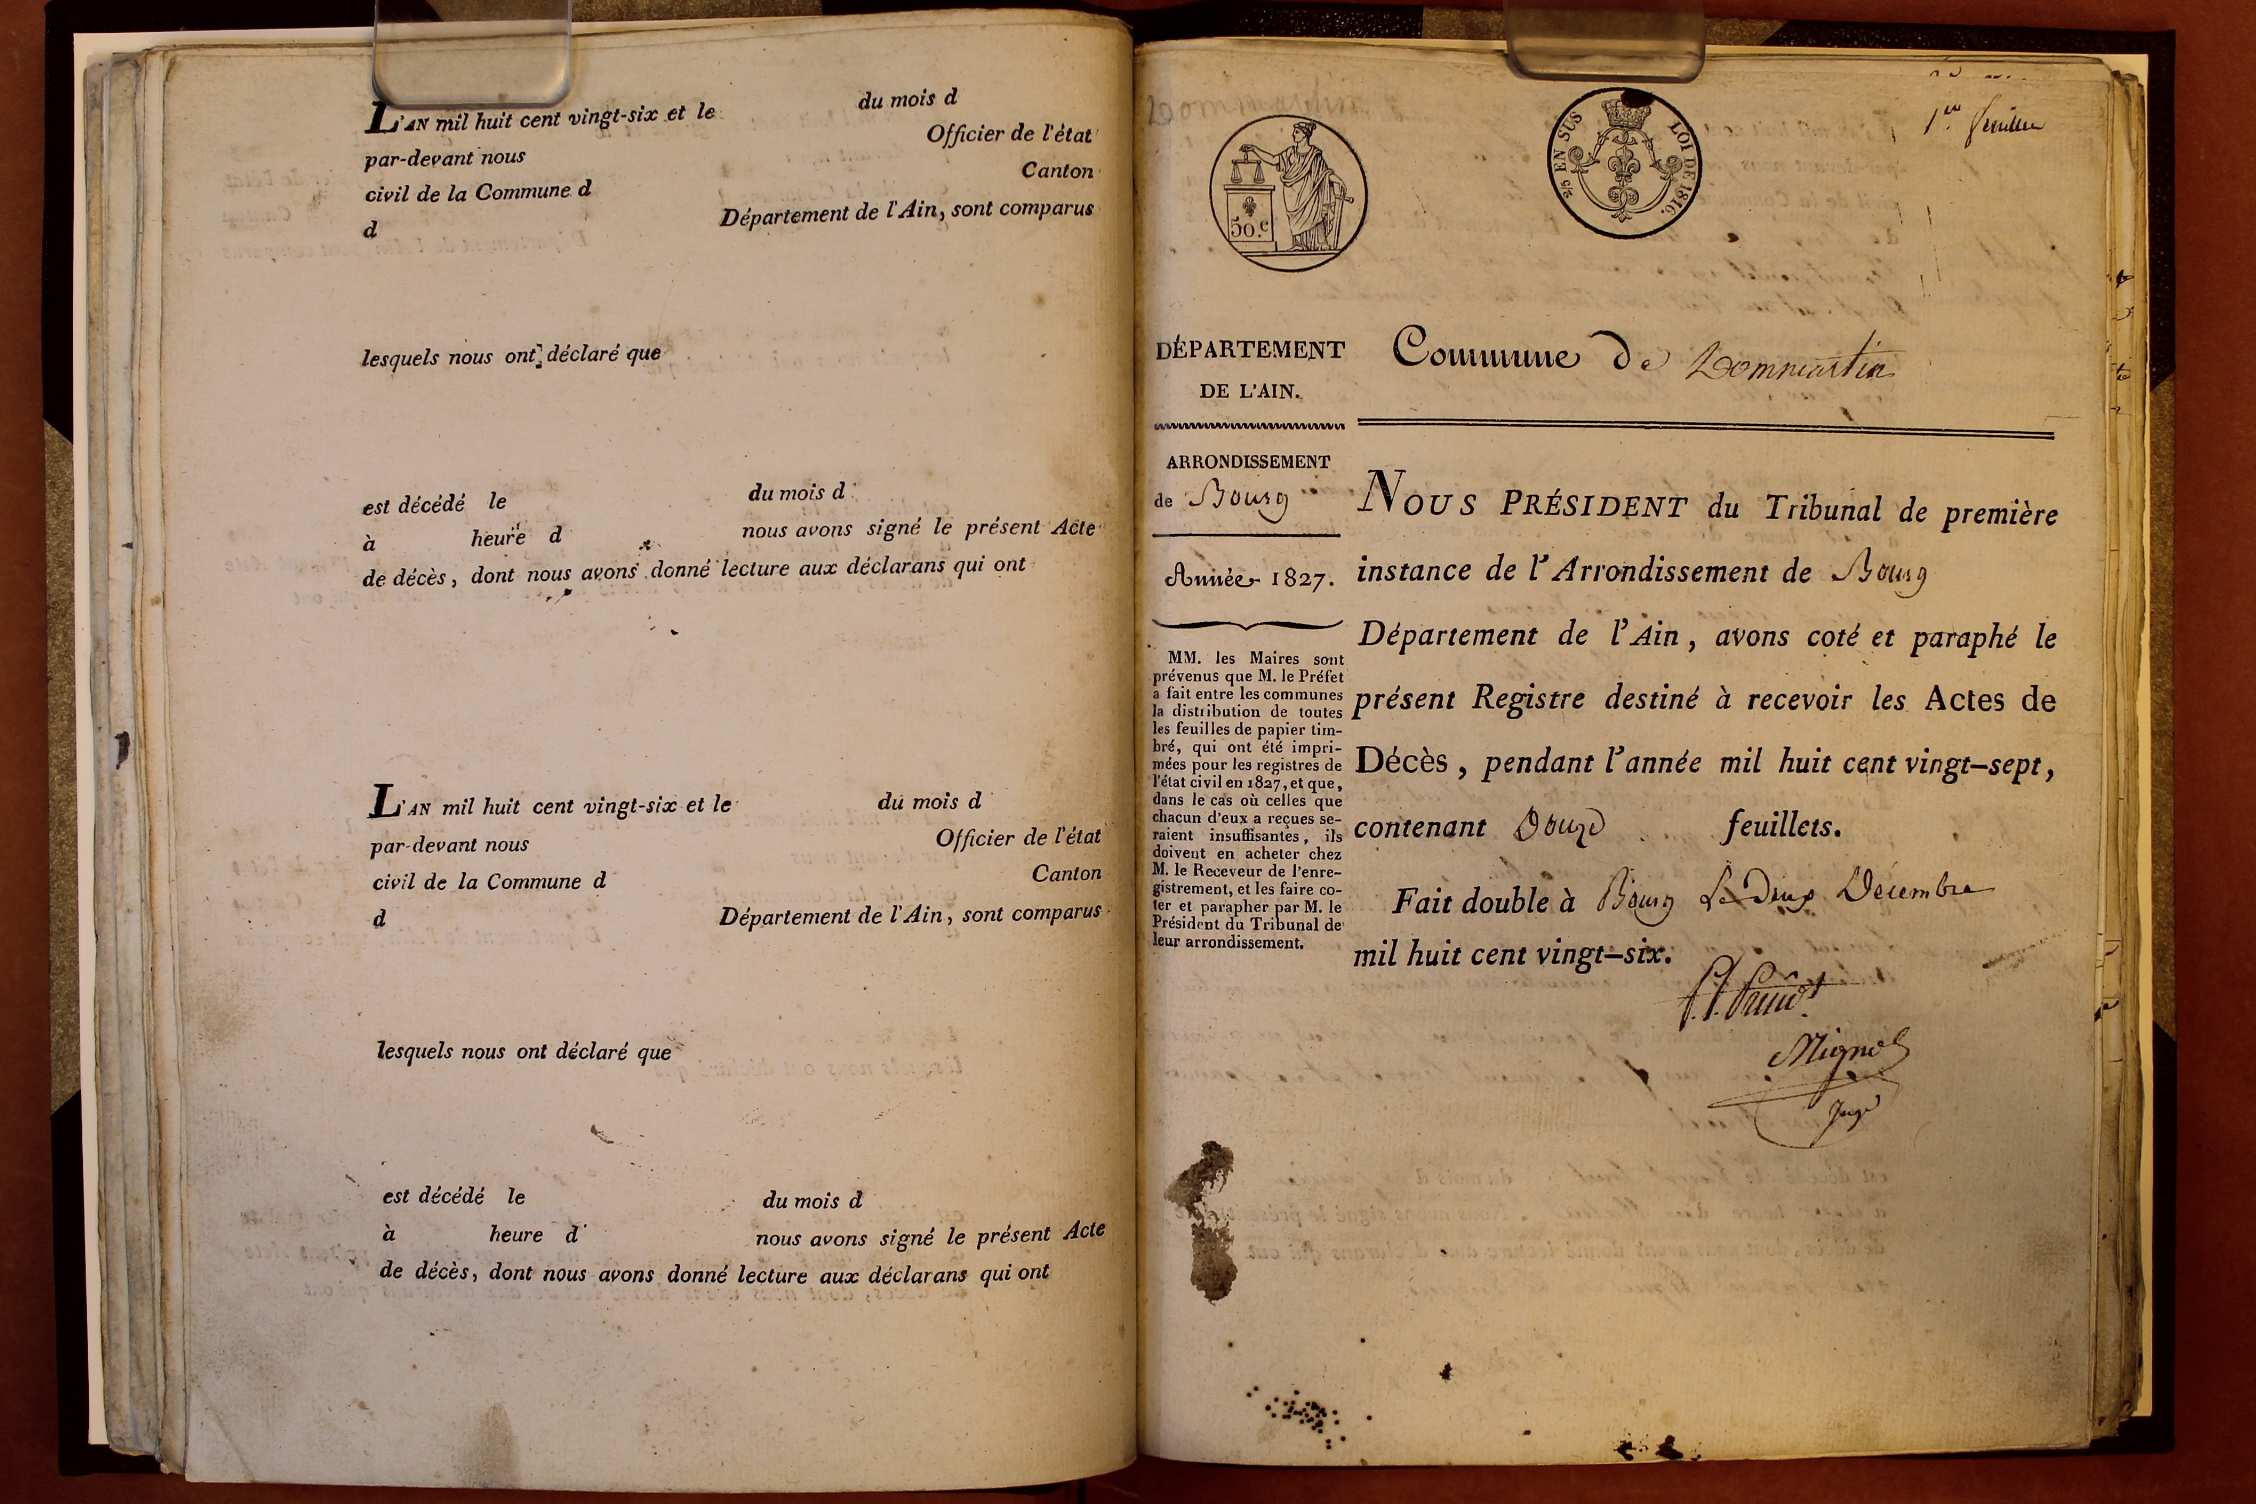 L'AN mil huit cent vingt-six et le du mois d
par-devant nous Officier de l'état
civil de la Commune d Canton
d Département de l'Ain, sont comparus
lesquels nous ont déclaré que
est décédé le du mois d
à heure d nous avons signé le présent Acte
de décès, dont nous avons donné lecture aux déclarans qui ont
L'AN mil huit cent vingt-six et le du mois d
par-devant nous Officier de l'état
civil de la Commune d Canton
d Département de l'Ain, sont comparus
lesquels nous ont déclaré que
est décédé le du mois d
à heure d nous avons signé le présent Acte
de décès, dont nous avons donné lecture aux déclarans qui ont
1er feuillet
50.c
2/5 EN SUS LOI DE 1816.
DÉPARTEMENT
DE L'AIN.
ARRONDISSEMENT
de Bourg
Année 1827.
MM. les Maires sont
prévenus que M. le Préfet
a fait entre les communes
la distribution de toutes
les feuilles de papier tim-
bré, qui ont été impri-
mées pour les registres de
l'état civil en 1827, et que,
dans le cas où celles que
chacun d'eux a reçues se-
raient insuffisantes, ils
doivent en acheter chez
M. le Receveur de l'enre-
gistrement, et les faire co-
ter et parapher par M. le
Président du Tribunal de
leur arrondissement.
Commune de Dommartin
NOUS PRÉSIDENT du Tribunal de première
instance de l'Arrondissement de Bourg
Département de l'Ain, avons coté et paraphé le
présent Registre destiné à recevoir les Actes de
Décès, pendant l'année mil huit cent vingt-sept,
contenant Douze feuillets.
Fait double à Bourg Le Deux Décembre
mil huit cent vingt-six.
Mignot
Juge